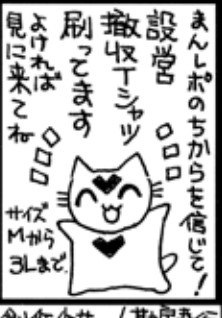 まんレポのちからを信じて！
設営
撤収Tシャツ
刷ってます
よければ
見に来てね
サイズ
Mから
3Lまで.